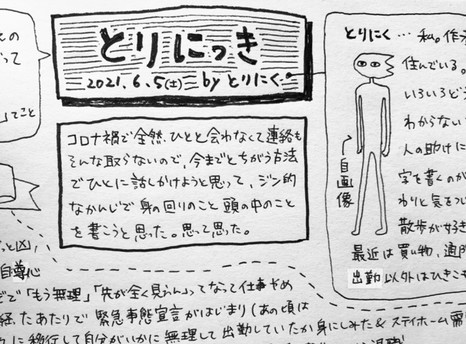 とりにっき
2021.6.5(土) by とりにく
コロナ禍で全然ひとと会わなくて連絡も
そんな取らないので、今までとちがう方法
でひとに話しかけようと思って、ジン的
なかんじで身の回りのこと 頭の中のこと
を書こうと思った。思って思った。
って
」てこと
とりにく… 私。作
住んでいる。
いろいろど
わからない
人の助けに
字を書くのが
わりと気をつ
散歩が好き
最近は買い物、通
出勤以外はひきこ
自画像
自尊心
で「もう無理」「先が全く見えん」ってなって仕事やめ
経たあたりで 緊急事態宣言がはじまり(あの頃は
に移行して自分がいかに無理して出勤していたか身にしみた&ステイホーム